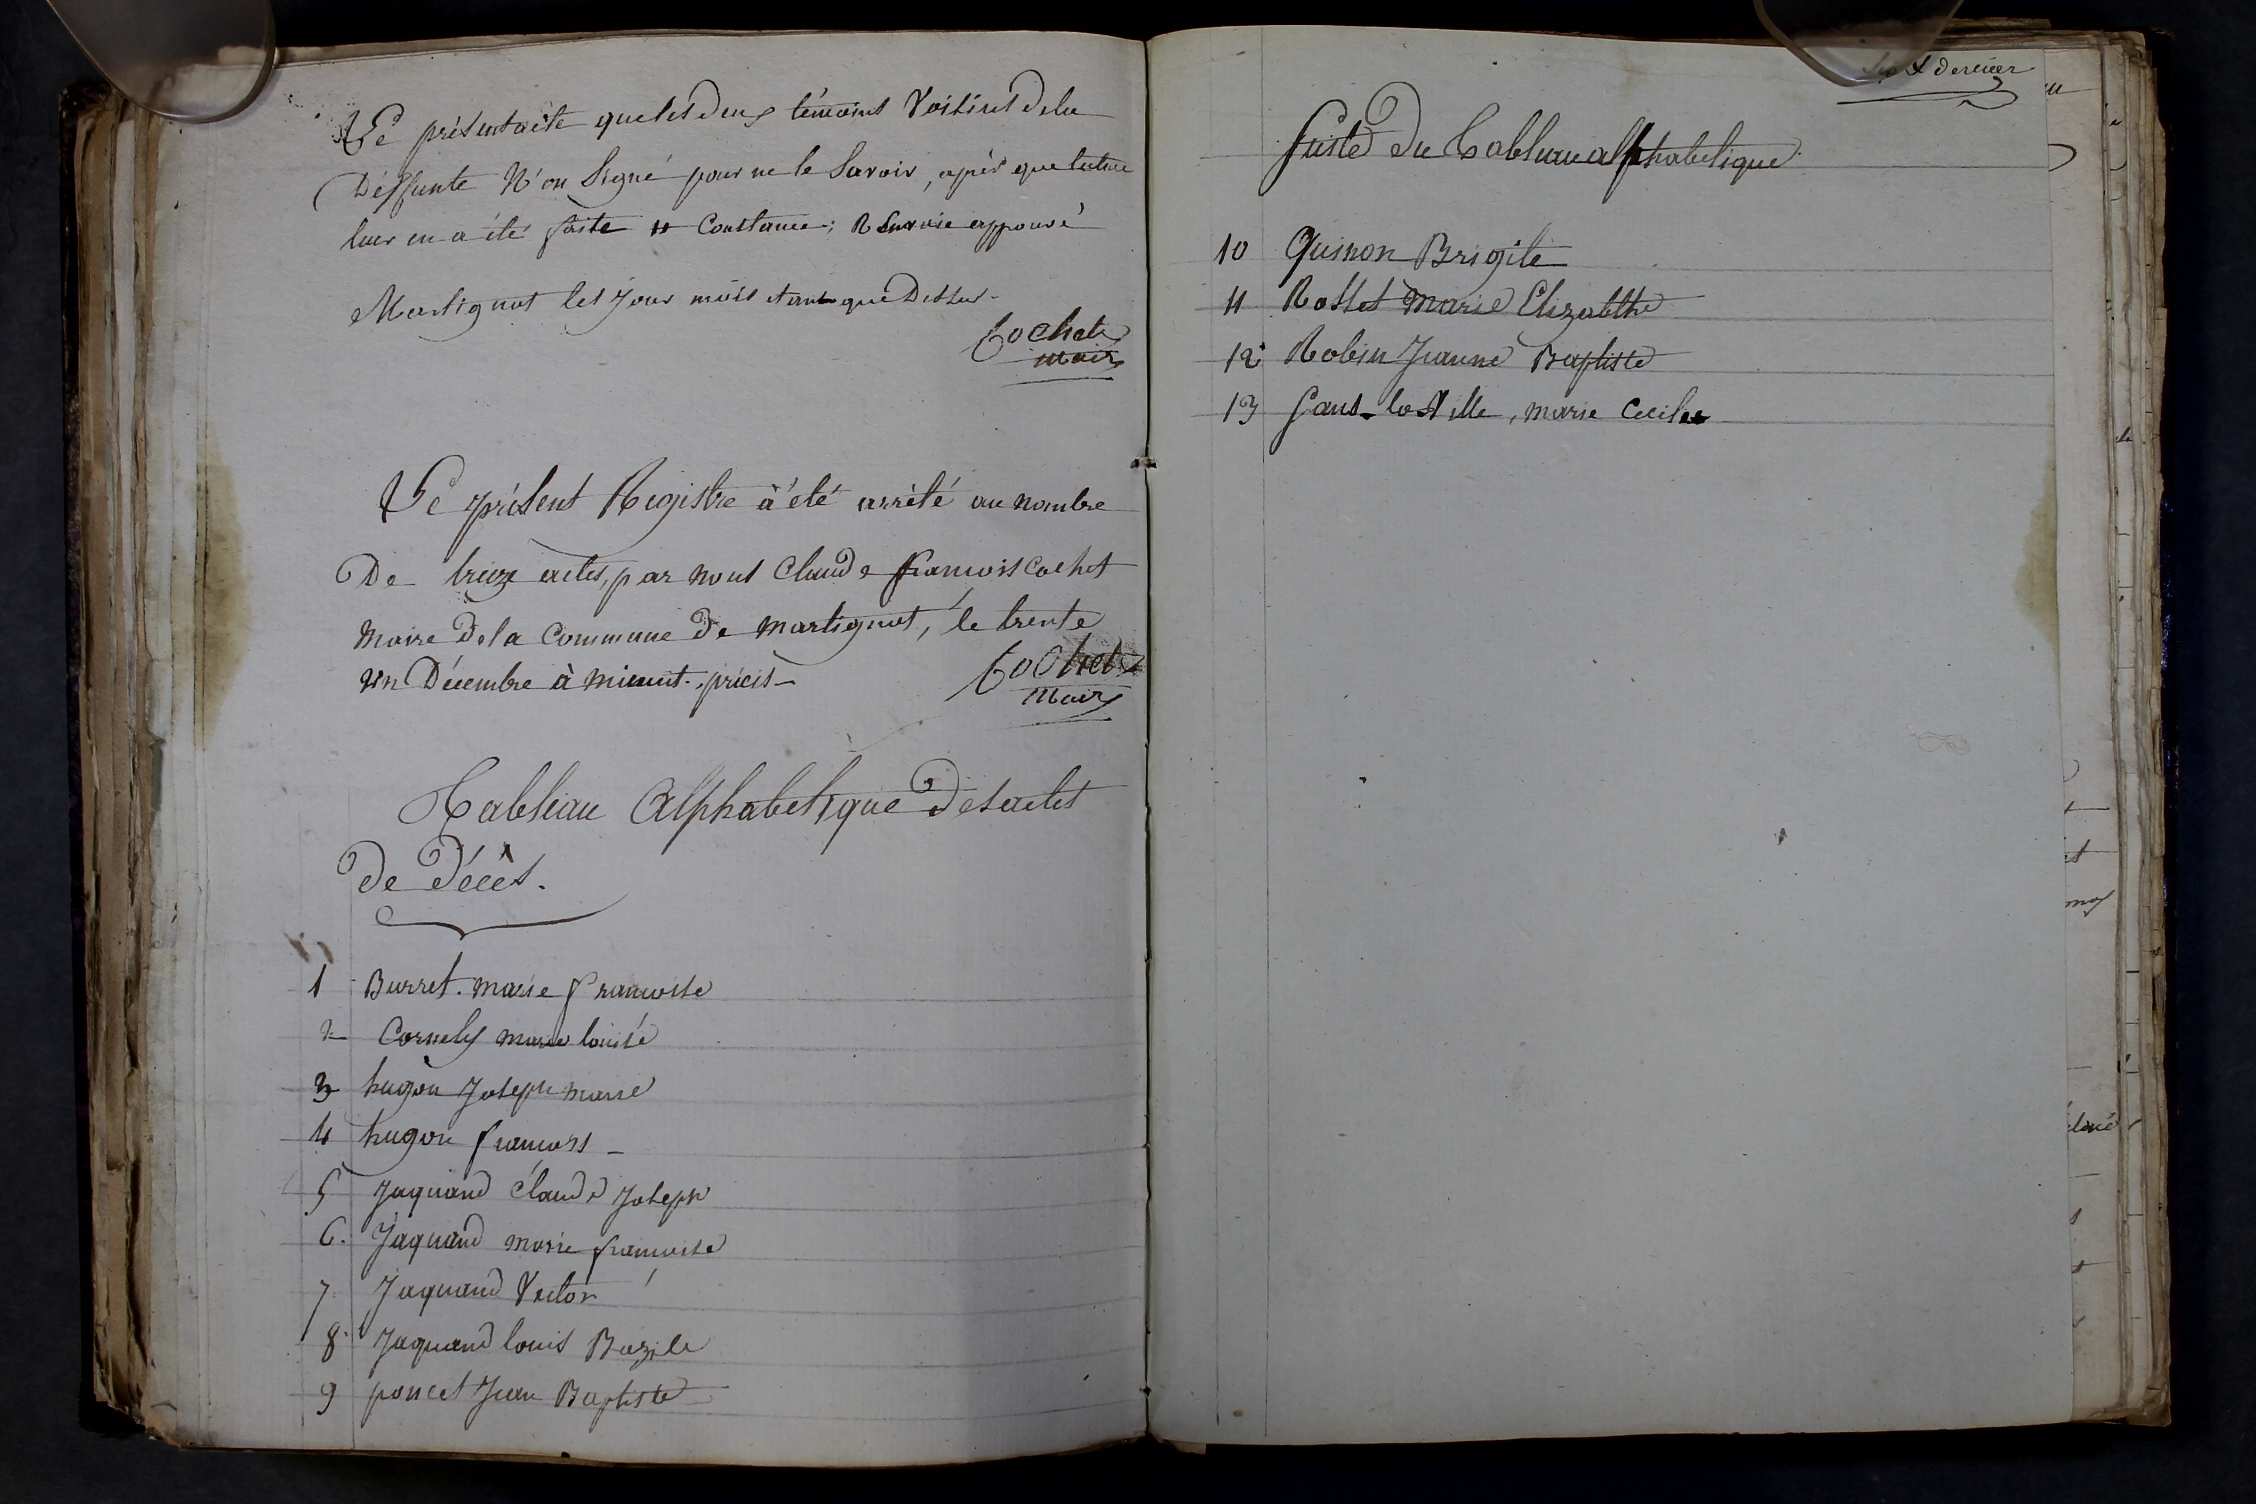 Le présent acte que les deux témoins Voisins de la
Déffunte N'on Signé pour ne le Savoir, après que lecture
leur en a été faite Constance; approuvé
Martignat les Jour mois et an que Dessus
Cochet
Maire
Le présent Registre à été arrêté au nombre
De treize actes, par nous Claude françois Cochet
Maire de la Commune de Martignat, le trente
un Décembre à minuit précis
Cochet
Maire
Tableau Alphabetique des actes
de Décès.
1 Burret. marie francoise
2 Cornely marie louise
3 hugon Joseph marie
4 hugon francois
5 Jaquand Claude Joseph
6. Jaquand marie francoise
7 Jaquand Victor
8 Jaquand louis Bazile
9 poncet Jean Baptiste
et dernier
Suite du Tableau alphabetique
10 Quinon Brigite
11 Rosset marie Elizabethe
12 Robin Jeanne Baptiste
13 Sans-la Ville, marie Cecile